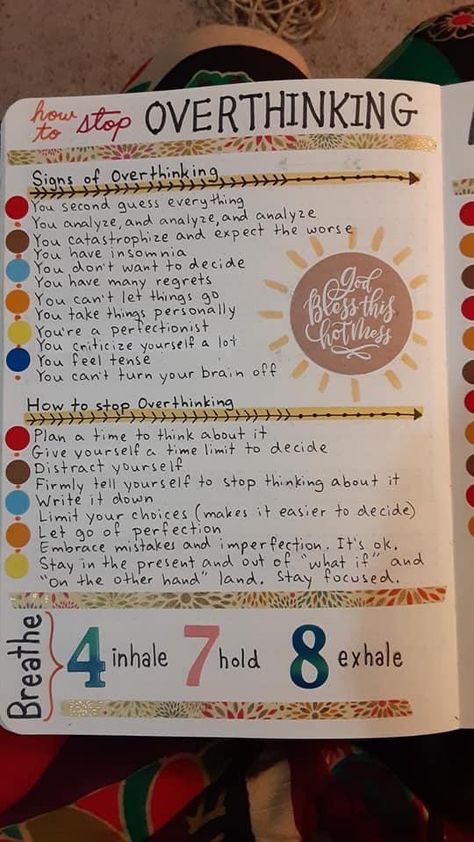 how to stop OVERTHINKING
Signs of Overthinking
You second guess everything
You analyze, and analyze, and analyze
You catastrophize and expect the worse
You have insomnia
You don't want to decide
You have many regrets
You can't let things go
You take things personally
You're a perfectionist
You criticize yourself a lot
You feel tense
You can't turn your brain off
God
Bless this
hot mess
How to stop Overthinking
Plan a time to think about it
Give yourself a time limit to decide
Distract yourself
Firmly tell yourself to stop thinking about it
Write it down
Limit your choices (makes it easier to decide)
Let go of perfection
Embrace mistakes and imperfection. It's ok.
Stay in the present and out of "what if" and
"on the other hand" land. Stay focused.
Breathe
4 inhale 7 hold 8 exhale